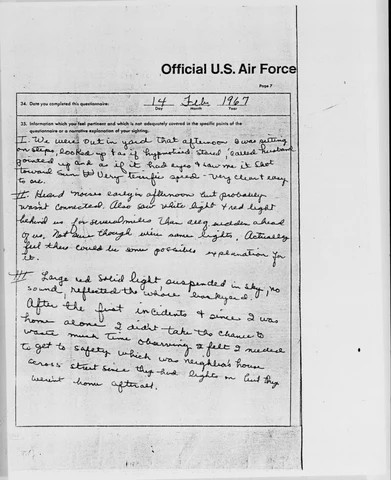 Official U.S. Air Force
Page 7
34. Date you completed this questionnaire:
14 Feb. 1967
Day Month Year
35. Information which you feel pertinent and which is not adequately covered in the specific points of the
questionnaire or a narrative explanation of your sighting.
I. We were out in yard that afternoon I was sitting
on steps, looked up & as if hypnotized stared, called husband
pointed up and as if it had eyes & saw me it shot
toward Sun at Very terrific speed - very clear & easy
to see.
II. Heard noises early in afternoon but probably
wasn't connected. Also saw white light & red light
behind us for several miles than all sudden ahead
of us. Not sure though were same lights. Actually
feel there could be some possible explanation for
it.
III Large red solid light suspended in sky, no
sound, reflected the whole backyard.
After the first incidents & since I was
home alone I didn't take the chance to
waste much time observing & felt I needed
to get to safety which was neighbor's house
across street since they had lights on but they
weren't home after all.